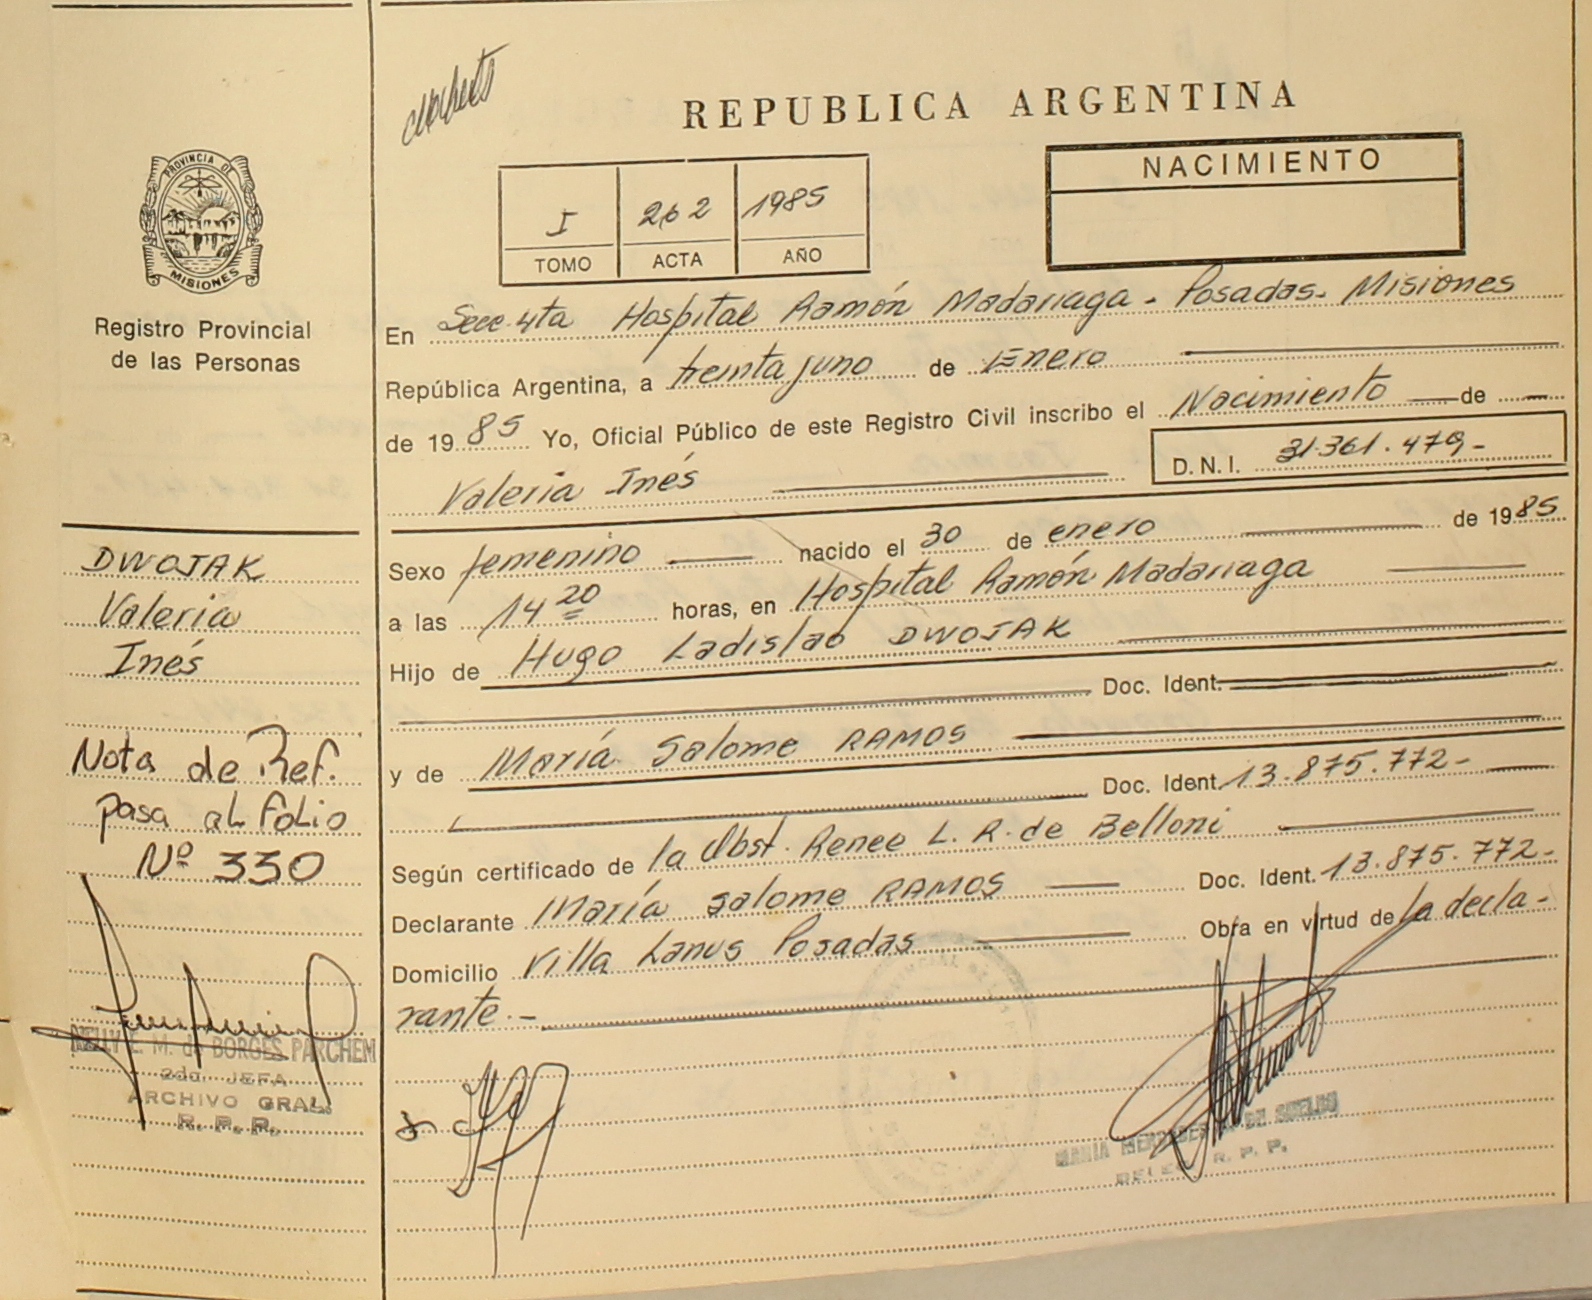 REPUBLICA ARGENTINA
PROVINCIA DE
MISIONES
Registro Provincial
de las Personas
I 262 1985
TOMO ACTA AÑO
NACIMIENTO
En Secc. 4ta Hospital Ramón Madariaga - Posadas - Misiones
República Argentina, a treinta y uno de Enero
de 19 85 Yo, Oficial Público de este Registro Civil inscribo el Nacimiento de
Valeria Inés D.N.I. 31.361.479-
Sexo femenino nacido el 30 de enero de 19 85
a las 14 20 horas, en Hospital Ramón Madariaga
Hijo de Hugo Ladislao DWOJAK
Doc. Ident.
y de María Salome RAMOS
Doc. Ident. 13.875.772-
Según certificado de la Obst. Renee L. R. de Belloni
Declarante María Salome RAMOS Doc. Ident. 13.875.772-
Domicilio Villa Lanus Posadas Obra en virtud de la decla-
rante.-
DWOJAK
Valeria
Inés
Nota de Ref.
pasa al folio
Nº 330
NELLY E. M. de BORGES PARCHEM
2da. JEFA
ARCHIVO GRAL.
R. P. P.
MARIA DE SUELDO
R. P. P.